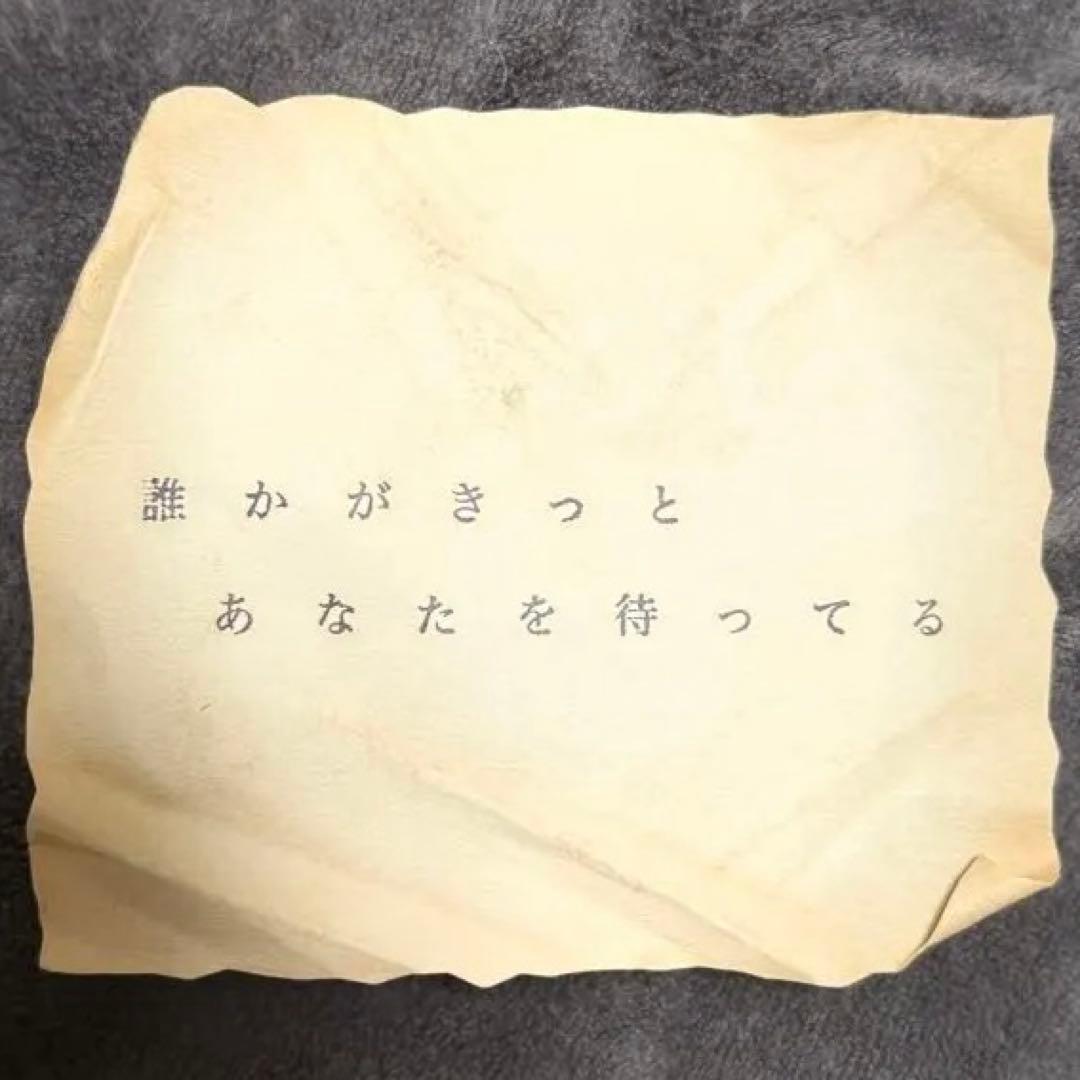 誰かがきっと
あなたを待ってる